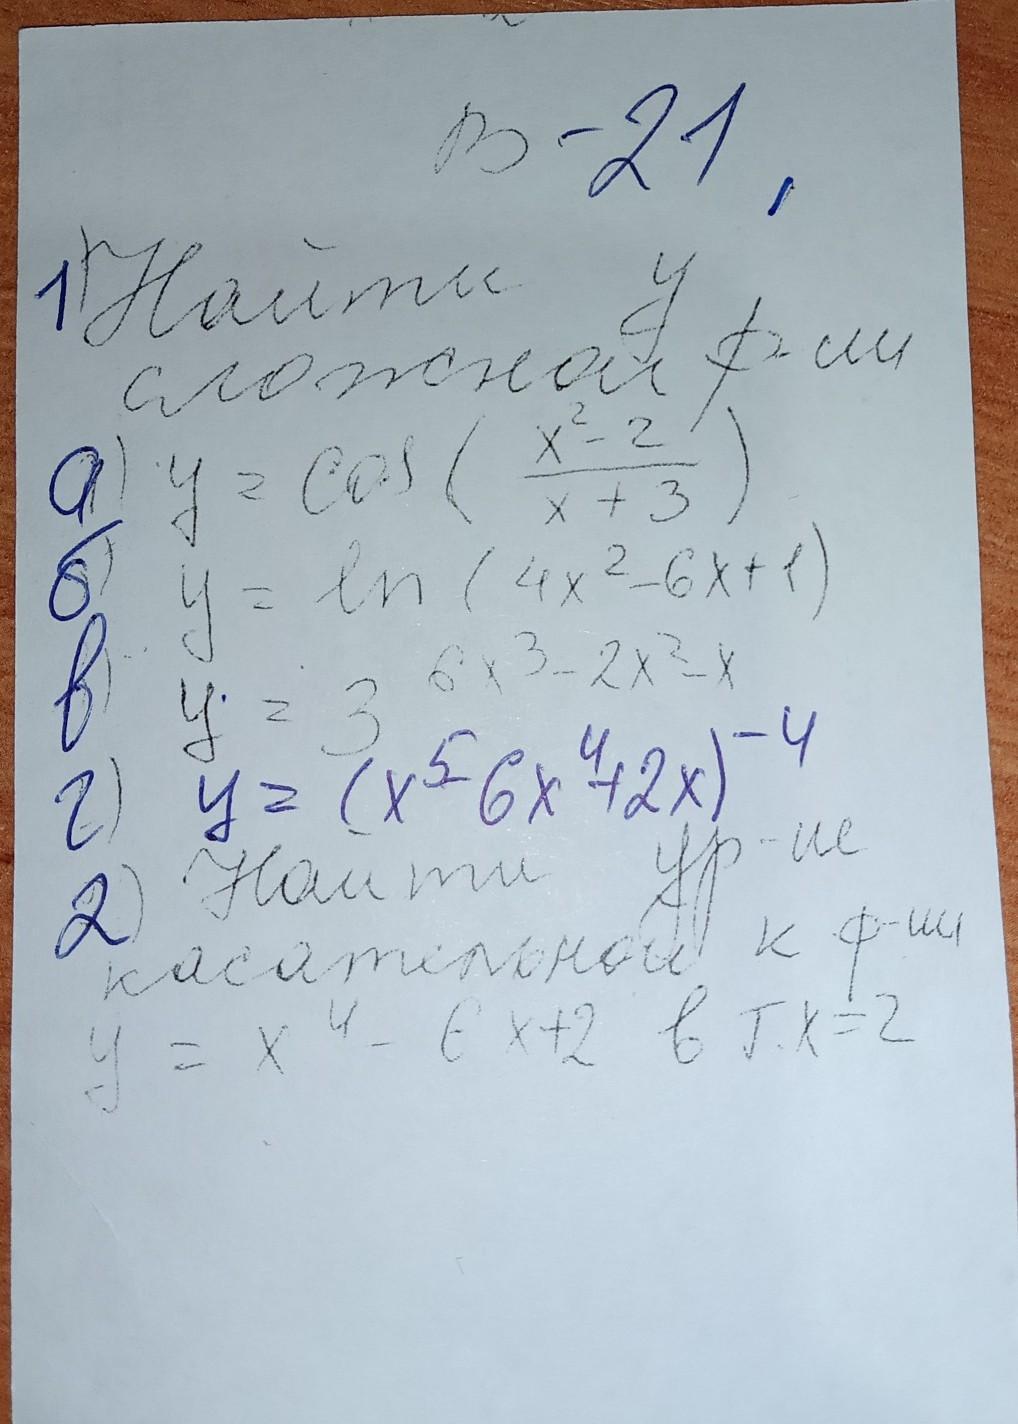 В-21,
1) Найти y
сложной ф-ии
а) y = cos ( x² - 2 / x + 3 )
б) y = ln ( 4x² - 6x + 1 )
в) y = 3^(6x³ - 2x² - x)
г) y = (x⁵ - 6x⁴ + 2x)⁻⁴
2) Найти ур-ие
касательной к ф-ии
y = x⁴ - 6x + 2 в т. x = 2